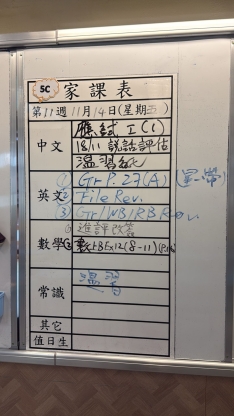 5C 家課表
第11週 11月14日(星期五)
中文 應試工(1)
18/11 說話評估
溫習紙
英文 ① Gr P.27(A) (星一帶)
② File Rev.
③ Gr/WB/RB Rev.
數學 ① 進評改答
② BEx12(8-11)
常識 溫習
其它
值日生